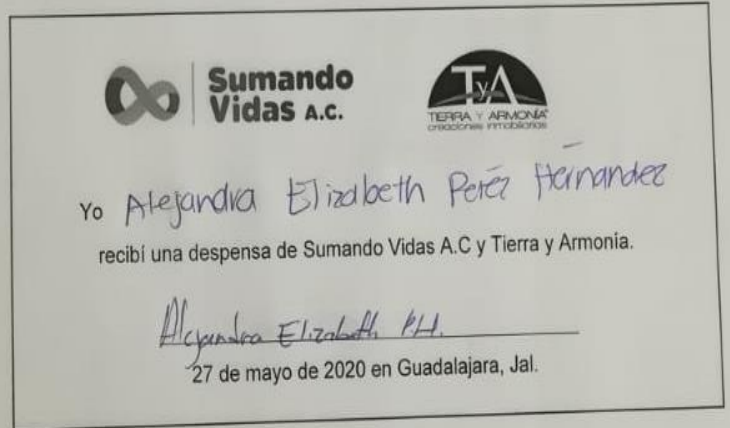 Sumando
Vidas A.C.
TyA
TIERRA Y ARMONÍA
creaciones inmobiliarias
Yo Alejandra Elizabeth Peréz Hernandez
recibí una despensa de Sumando Vidas A.C y Tierra y Armonía.
Alejandra Elizabeth P.H.
27 de mayo de 2020 en Guadalajara, Jal.